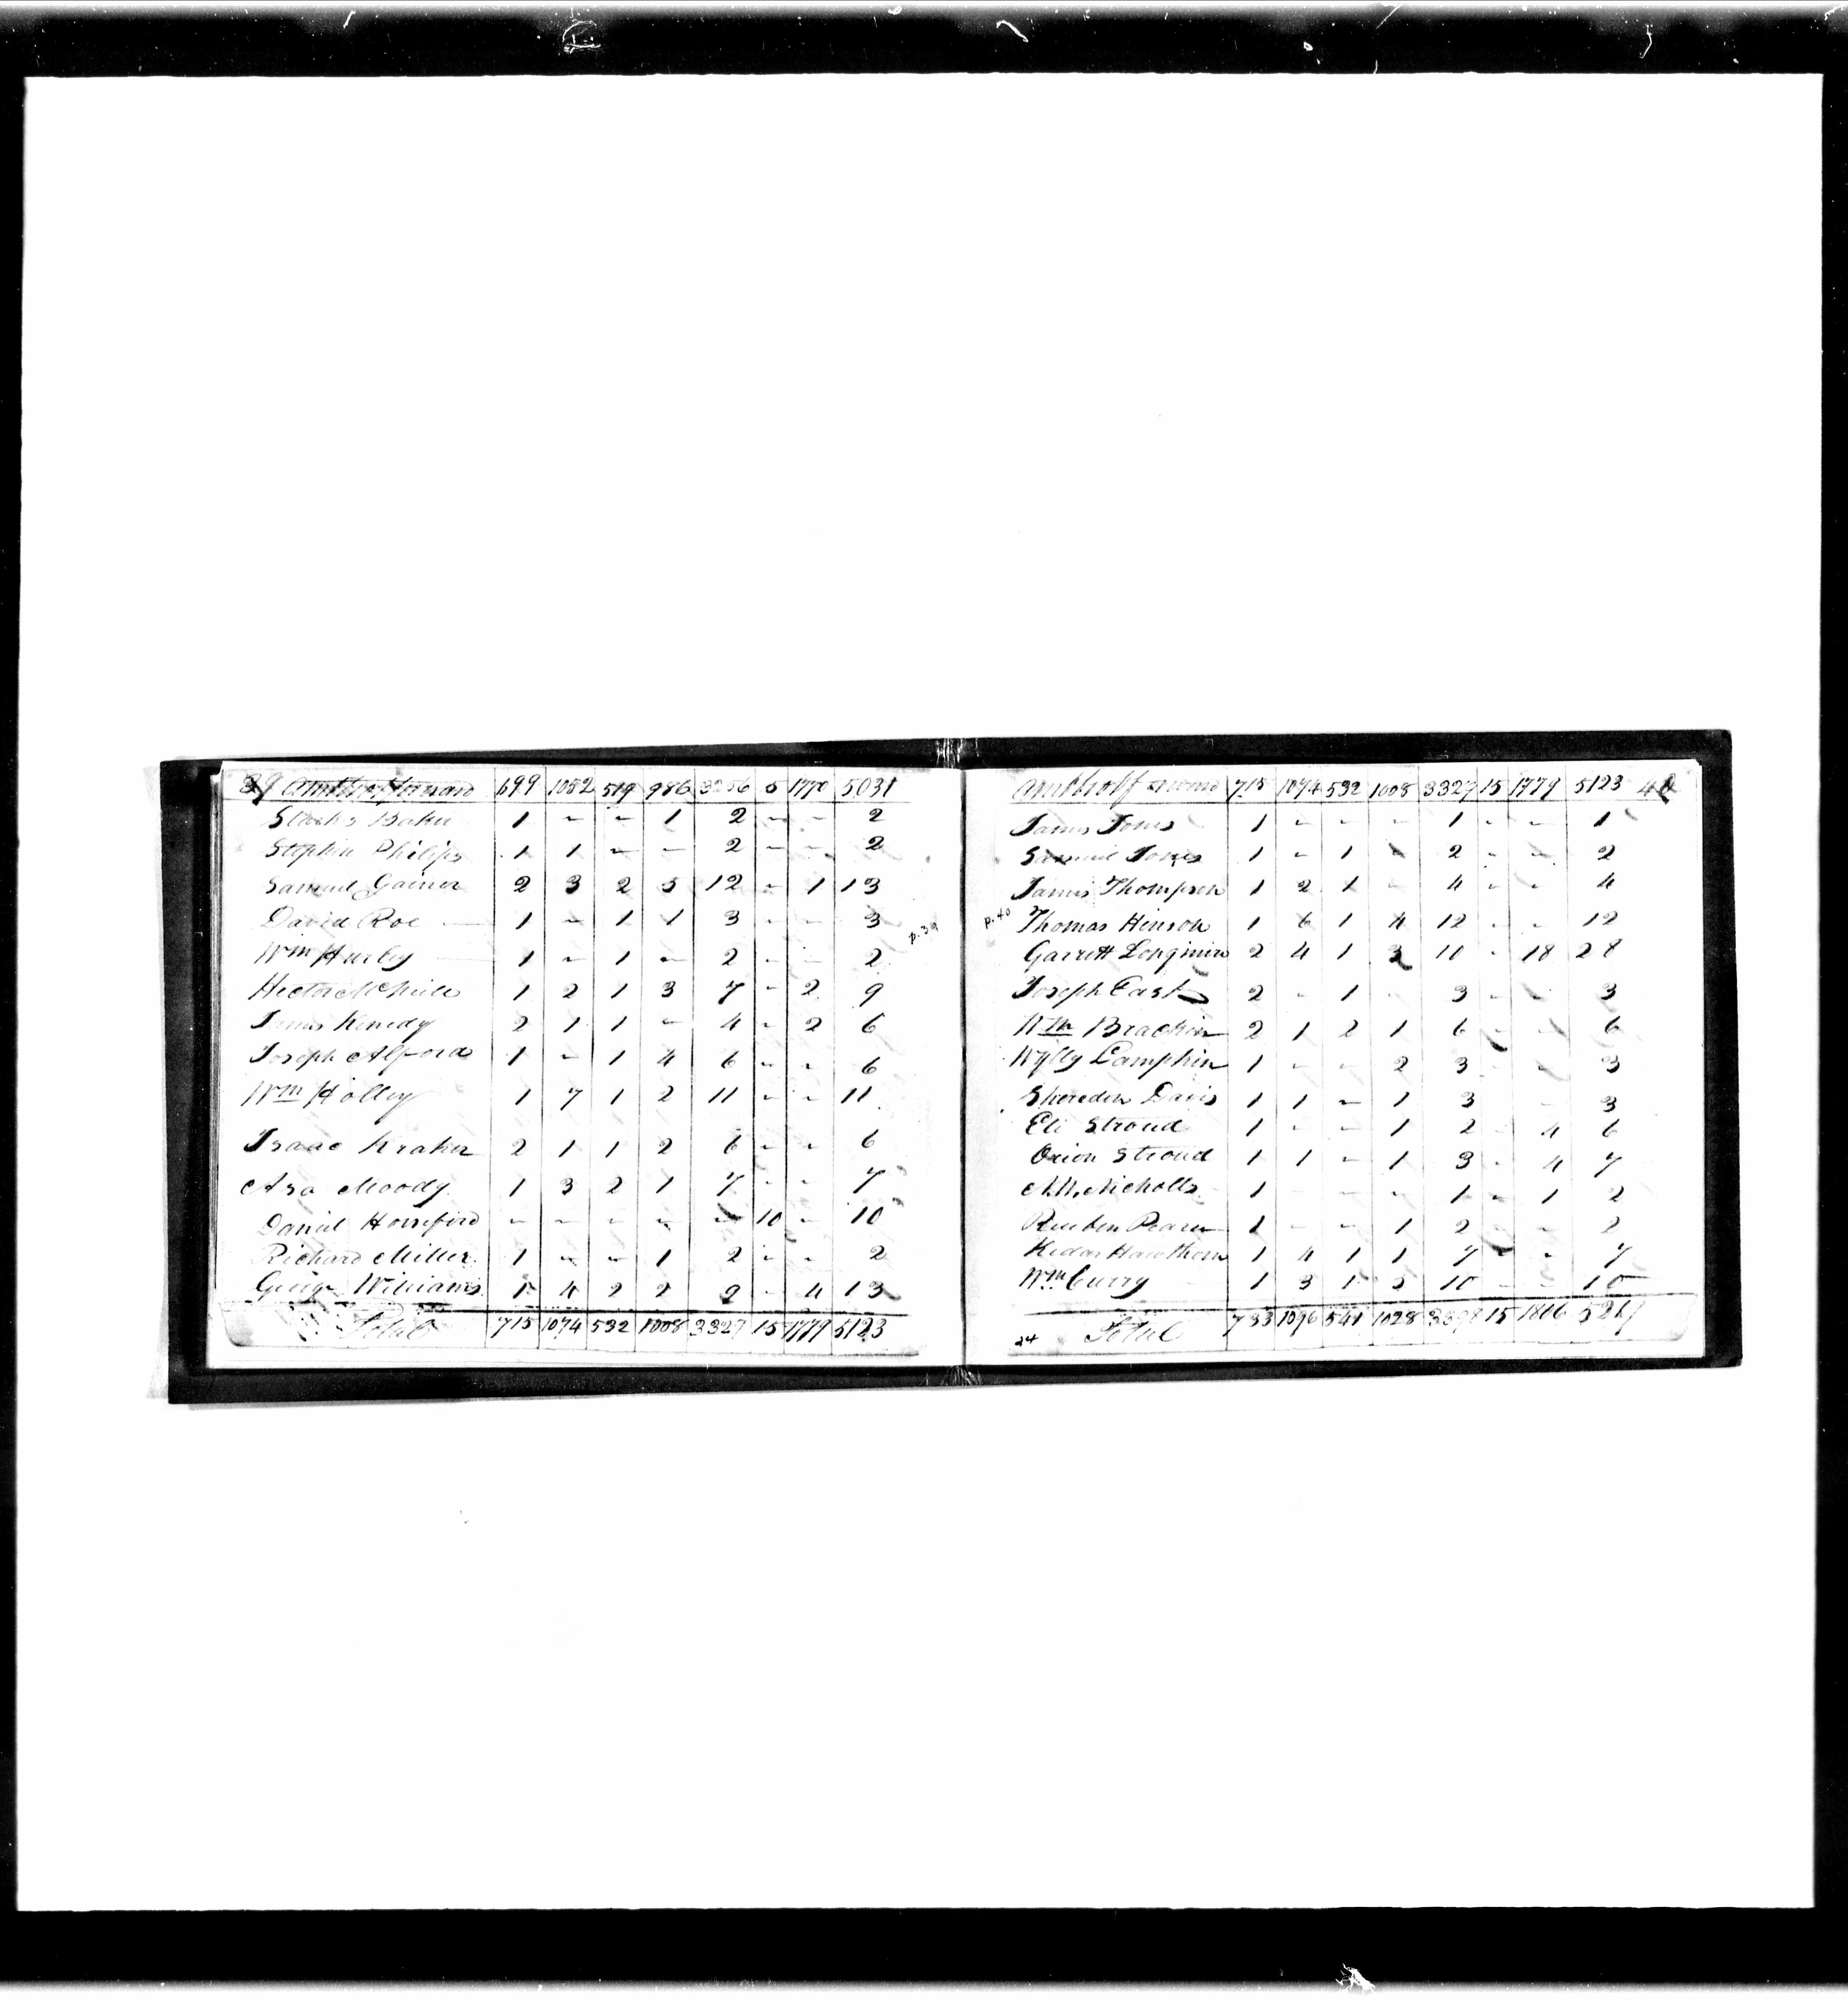 39 Amt brot forward 699 1052 519 986 3256 5 1770 5031
Baker 1 - - 1 2 - - 2
Stephen Philips 1 1 - - 2 - - 2
Samuel Gainer 2 3 2 5 12 - 1 13
David Roe 1 - 1 1 3 - - 3
Wm Hurley 1 - 1 - 2 - - 2
Hector McNeile 1 2 1 3 7 - 2 9
James Kenedy 2 1 1 - 4 - 2 6
Joseph Alford 1 - 1 4 6 - - 6
Wm Holley 1 7 1 2 11 - - 11
Isaac Kraker 2 1 1 2 6 - - 6
Asa Moody 1 3 2 1 7 - - 7
Daniel Horseford - - - - - 10 - 10
Richard Miller 1 - - 1 2 - - 2
Williams 1 4 2 2 9 - 4 13
Total 715 1074 532 1008 3327 15 1779 5123
p. 39
Amt brot forward 715 1074 532 1008 3327 15 1779 5123 40
James Jones 1 - - - 1 - - 1
Samuel Jones 1 - 1 - 2 - - 2
James Thompson 1 2 1 - 4 - - 4
p. 40
Thomas Hinson 1 6 1 4 12 - - 12
Garrett Longmire 2 4 1 3 10 - 18 28
Joseph East 2 - 1 - 3 - - 3
Wm Brackin 2 1 2 1 6 - - 6
Wylly Lamphin 1 - - 2 3 - - 3
Shereden Davis 1 1 - 1 3 - 3
Eli Stroud 1 - - 1 2 4 6
Orion Stroud 1 1 - 1 3 - 4 7
Nicholls 1 - - - 1 - 1 2
Reuben 1 - - 1 2 - 2
Kedar Hawthorn 1 4 1 1 7 - - 7
Wm Curry 1 3 1 5 10 - 10
24 Total 733 1096 541 1028 3398 15 1806 5219